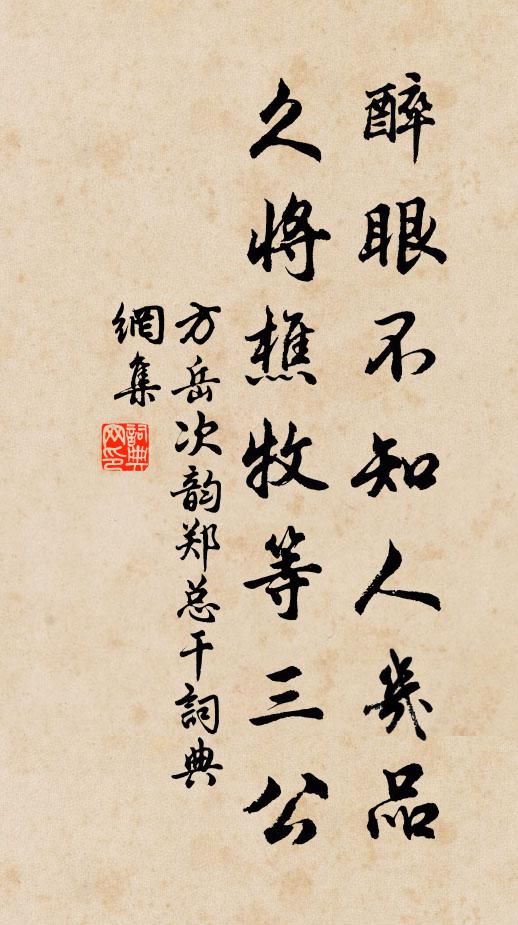 醉眼不知人幾品
久將樵牧等三公
方岳次韵郑总干詞典
網集
詞典
网印